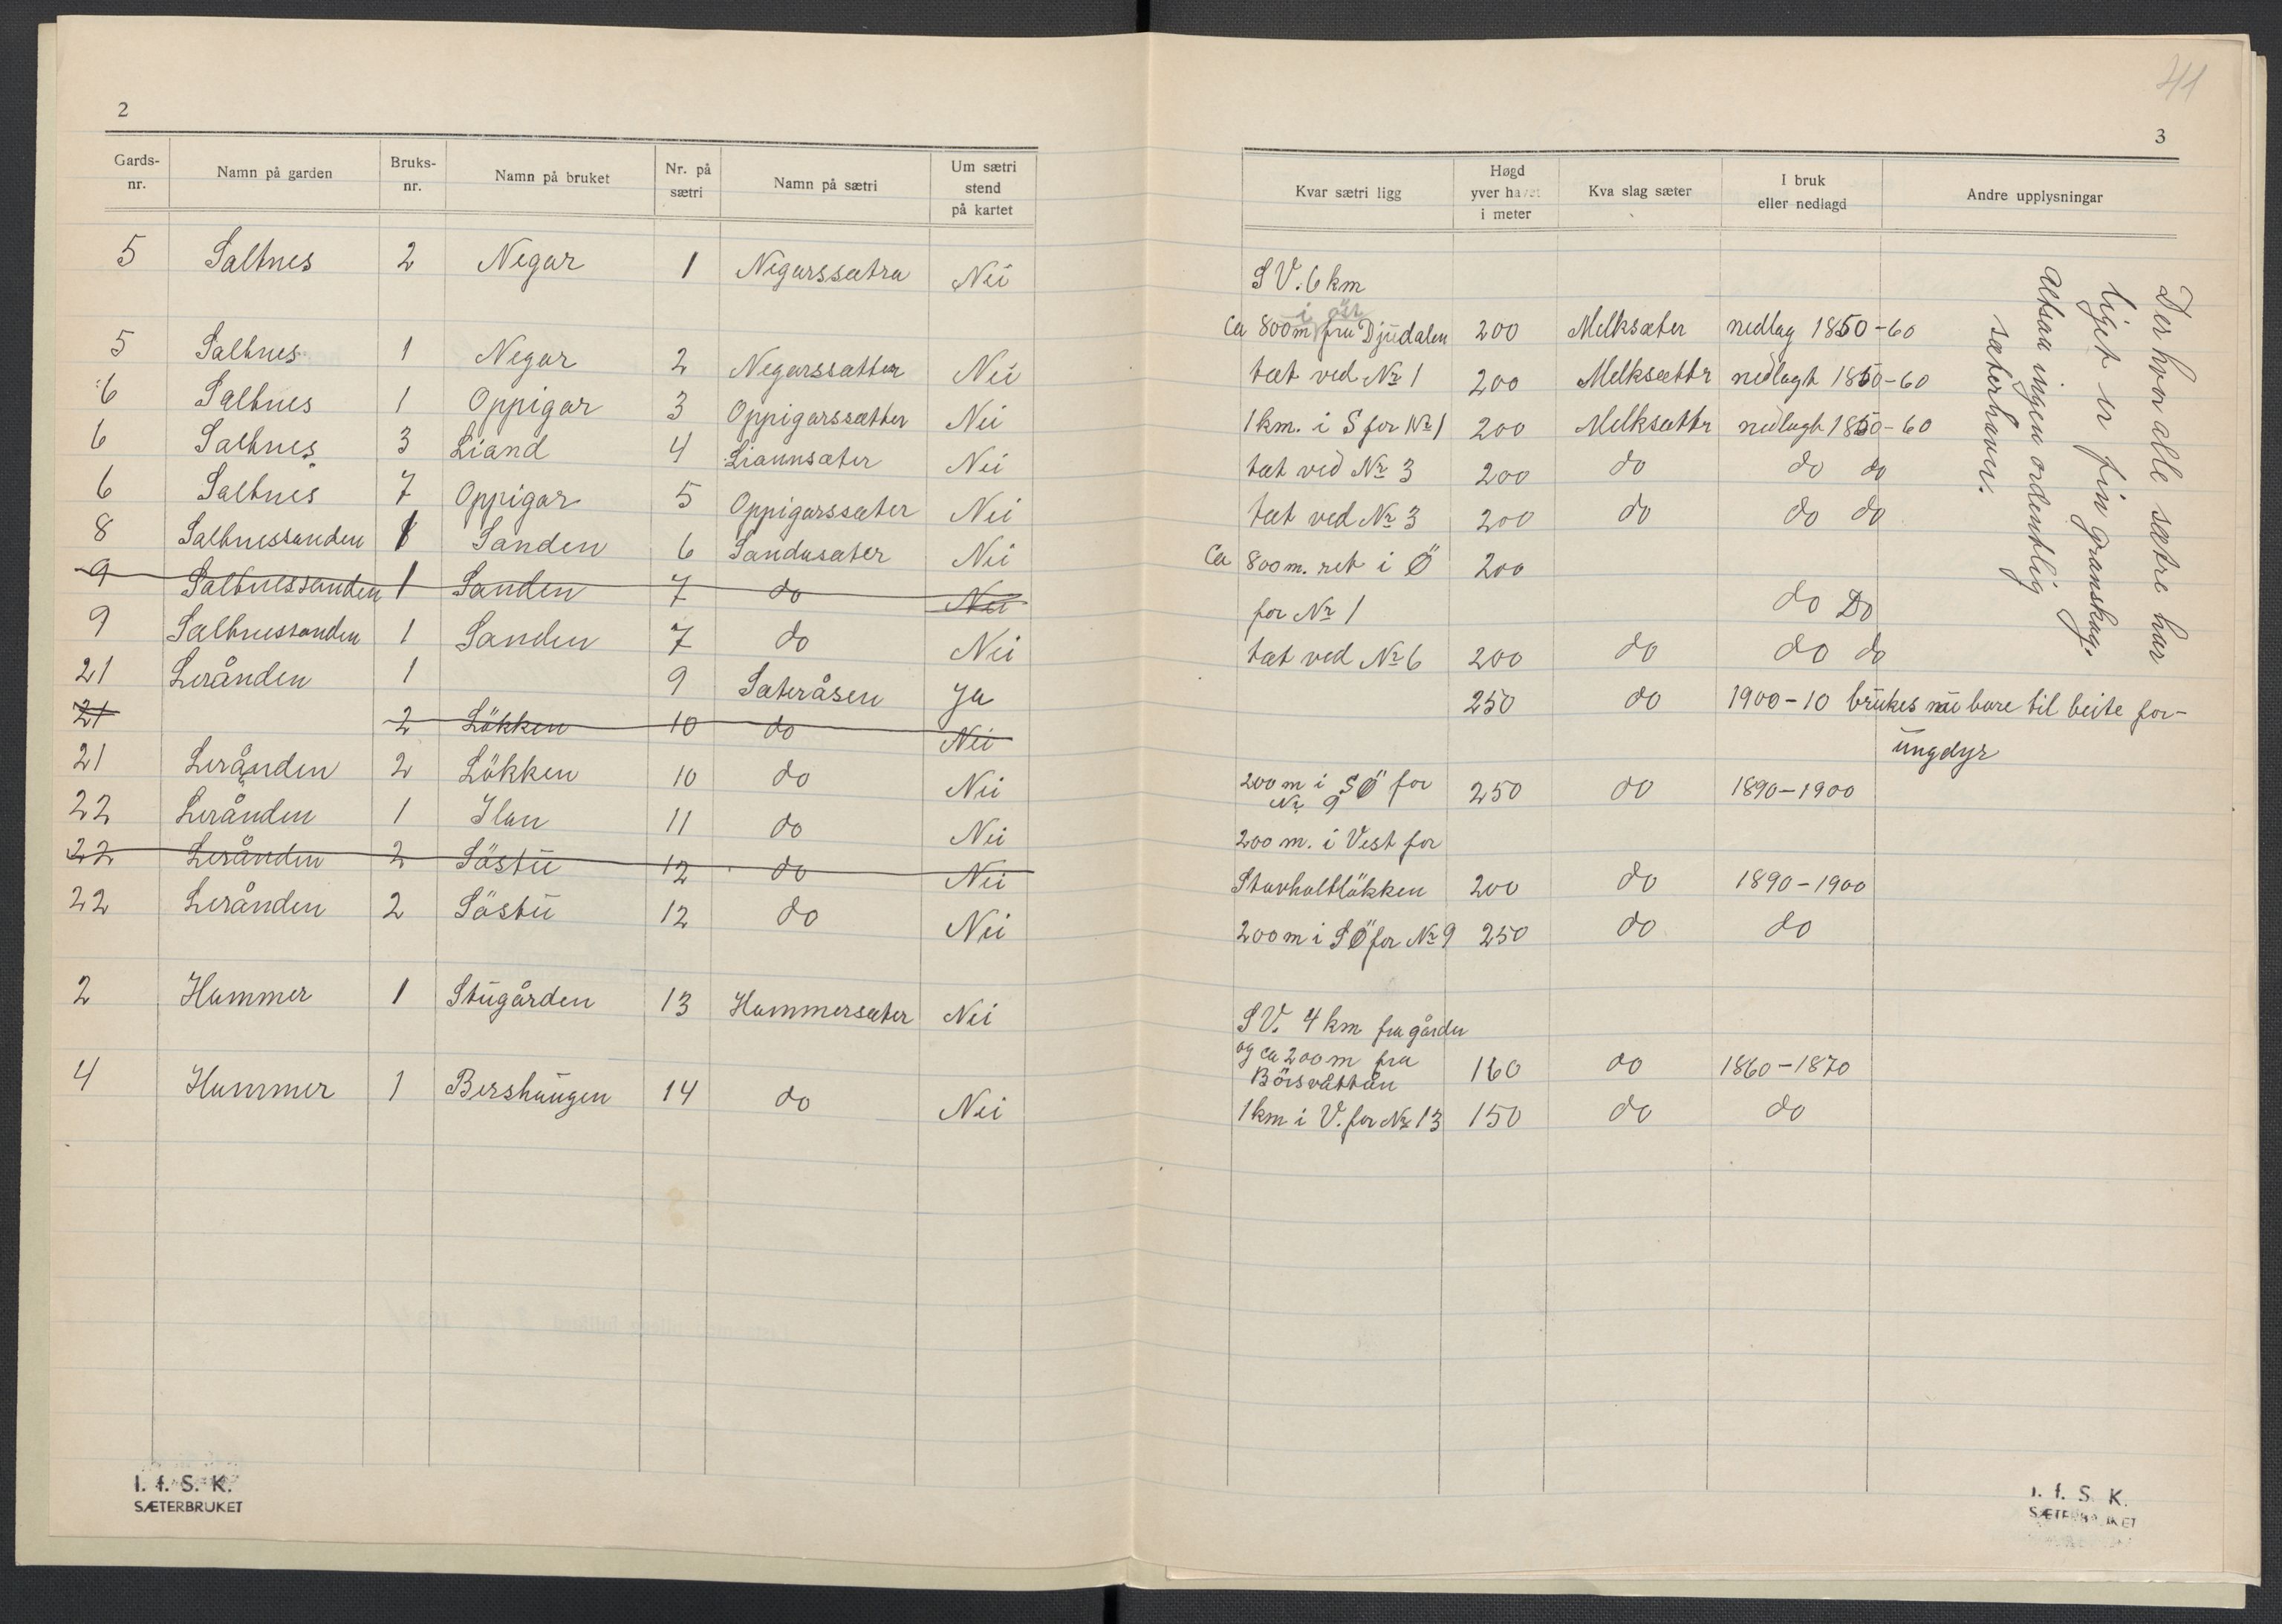 2
Gards-nr. Namn på garden Bruks-nr. Namn på bruket Nr. på sætri Namn på sætri Um sætri stend på kartet
5 Saltnes 2 Negar 1 Negarssætra Nei
5 Saltnes 1 Negar 2 Negarssætter Nei
6 Saltnes 1 Oppigar 3 Oppigarssætter Nei
6 Saltnes 3 Liand 4 Liaunsæter Nei
6 Saltnes 7 Oppigar 5 Oppigarssæter Nei
8 Saltnessanden 1 Sanden 6 Sandasæter Nei
9 Saltnessanden 1 Sanden 7 do Nei
9 Saltnessanden 1 Sanden 7 do Nei
21 Leränden 1 9 Sæteråsen Ja
21 2 Lökken 10 do Nei
21 Leränden 2 Lökken 10 do Nei
22 Leränden 1 Ilan 11 do Nei
22 Leränden 2 Söstu 12 do Nei
22 Leränden 2 Söstu 12 do Nei
2 Hammer 1 Stugården 13 Hammersæter Nei
4 Hammer 1 Bershaugen 14 do Nei
I. f. S. K.
SÆTERBRUKET
41
3
Kvar sætri ligg Høgd yver havet i meter Kva slag sæter I bruk eller nedlagd Andre upplysningar
SV. 6 km
i öst
Ca 800 m fra Djudalen 200 Melksæter nedlag 1850-60
tæt ved Nr 1 200 Melksætter nedlagt 1850-60
1 km. i S for Nr 1 200 Melksætter nedlagt 1850-60
tæt ved Nr 3 200 do do do
tæt ved Nr 3 200 do do do
Ca 800 m. ret i Ö 200
for Nr 1 do Do
tæt ved Nr 6 200 do do do
250 do 1900-10 brukes nu bare til beite for-
ungdyr
200 m i SÖ for
Nr 9 250 do 1890-1900
200 m. i Vest for
Stavholtlökken 200 do 1890-1900
200 m i SÖ for Nr 9 250 do do
SV. 4 km fra gården
og ca 200 m fra
Börsvattån 160 do 1860-1870
1 km i V. for Nr 13 150 do do
Der hvor alle sætre har
ligget er fin granskog.
Altsaa ingen ordentlig
sæterhavn.
I. f. S. K.
SÆTERBRUKET